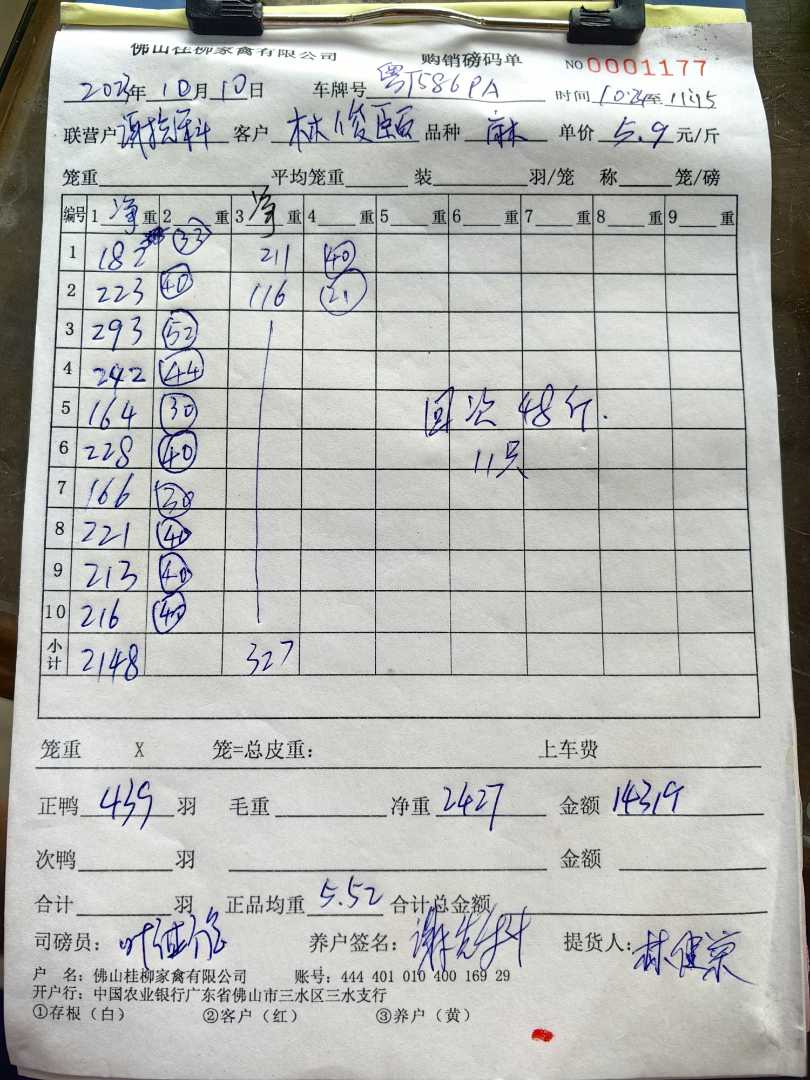 佛山桂柳家禽有限公司 购销磅码单 NO 0001177
2023年 10月 10日 车牌号 粤T586PA 时间 10:24至 11:15
联营户 客户 林俊颐 品种 麻 单价 5.9 元/斤
笼重 平均笼重 装 羽/笼 称 笼/磅
编号 1 净 重 2 重 3 净 重 4 重 5 重 6 重 7 重 8 重 9 重
1 182 33 211 40
2 223 40 116 21
3 293 52
4 242 44
5 164 30 回次 48斤.
6 228 40 11只
7 166 30
8 221 40
9 213 40
10 216 40
小计 2148 327
笼重 X 笼=总皮重: 上车费
正鸭 439 羽 毛重 净重 2427 金额 14319
次鸭 羽 金额
合计 羽 正品均重 5.52 合计总金额
司磅员: 养户签名: 提货人:
户 名: 佛山桂柳家禽有限公司 账号: 444 401 010 400 169 29
开户行: 中国农业银行广东省佛山市三水区三水支行
①存根(白) ②客户(红) ③养户(黄)